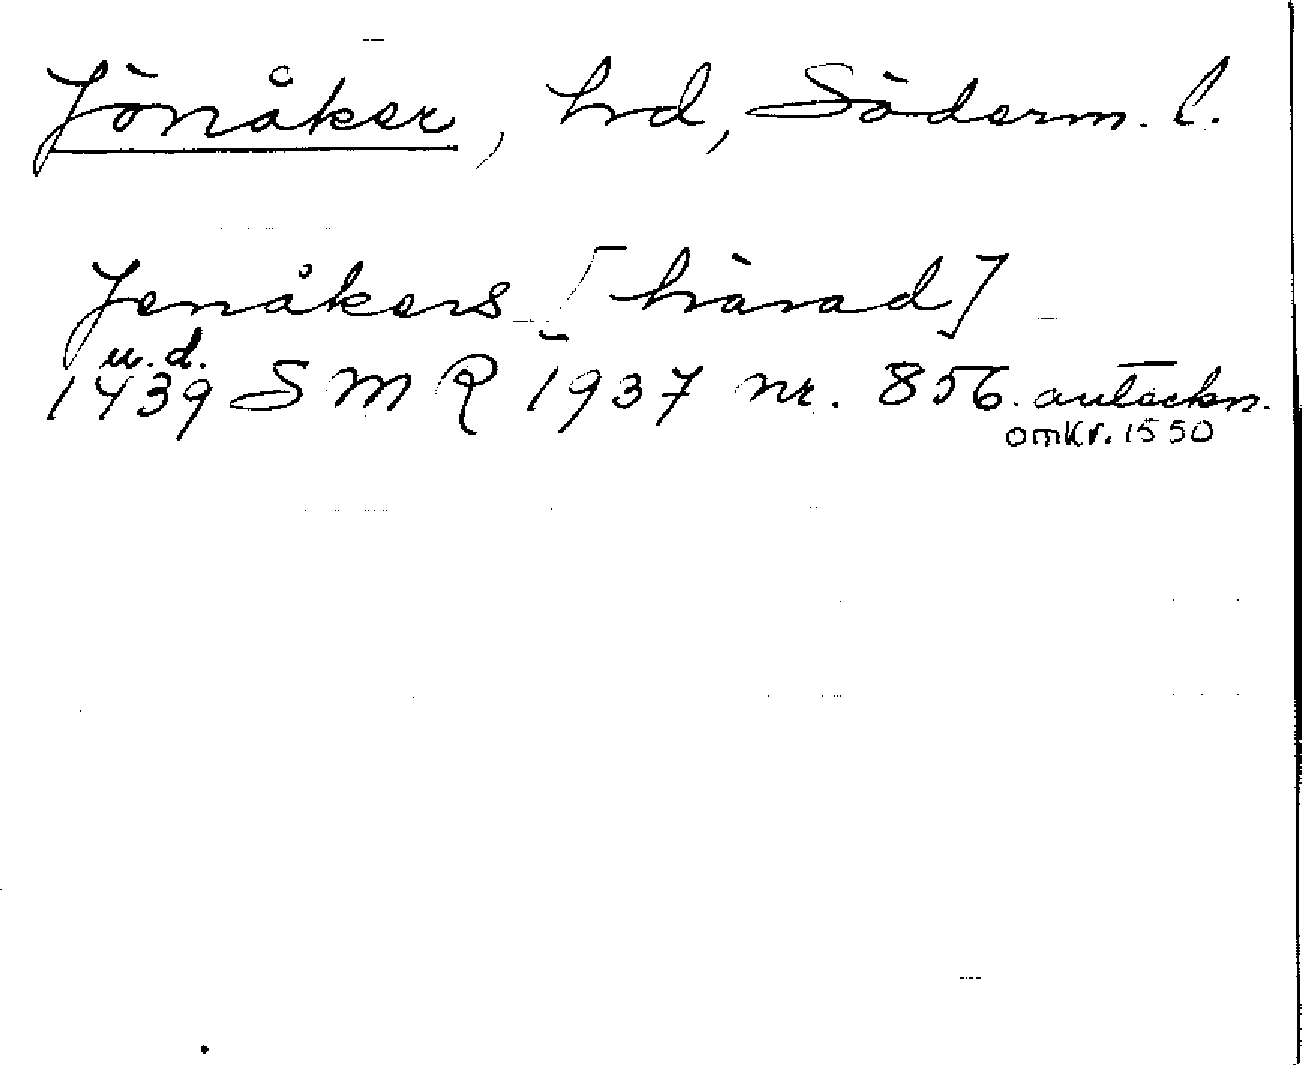 Jönåker, hrd, Söderm. l.
Jenåkers [härad]
u.d.
1439 SMR 1937 nr. 856. anteckn.
omkr. 1550